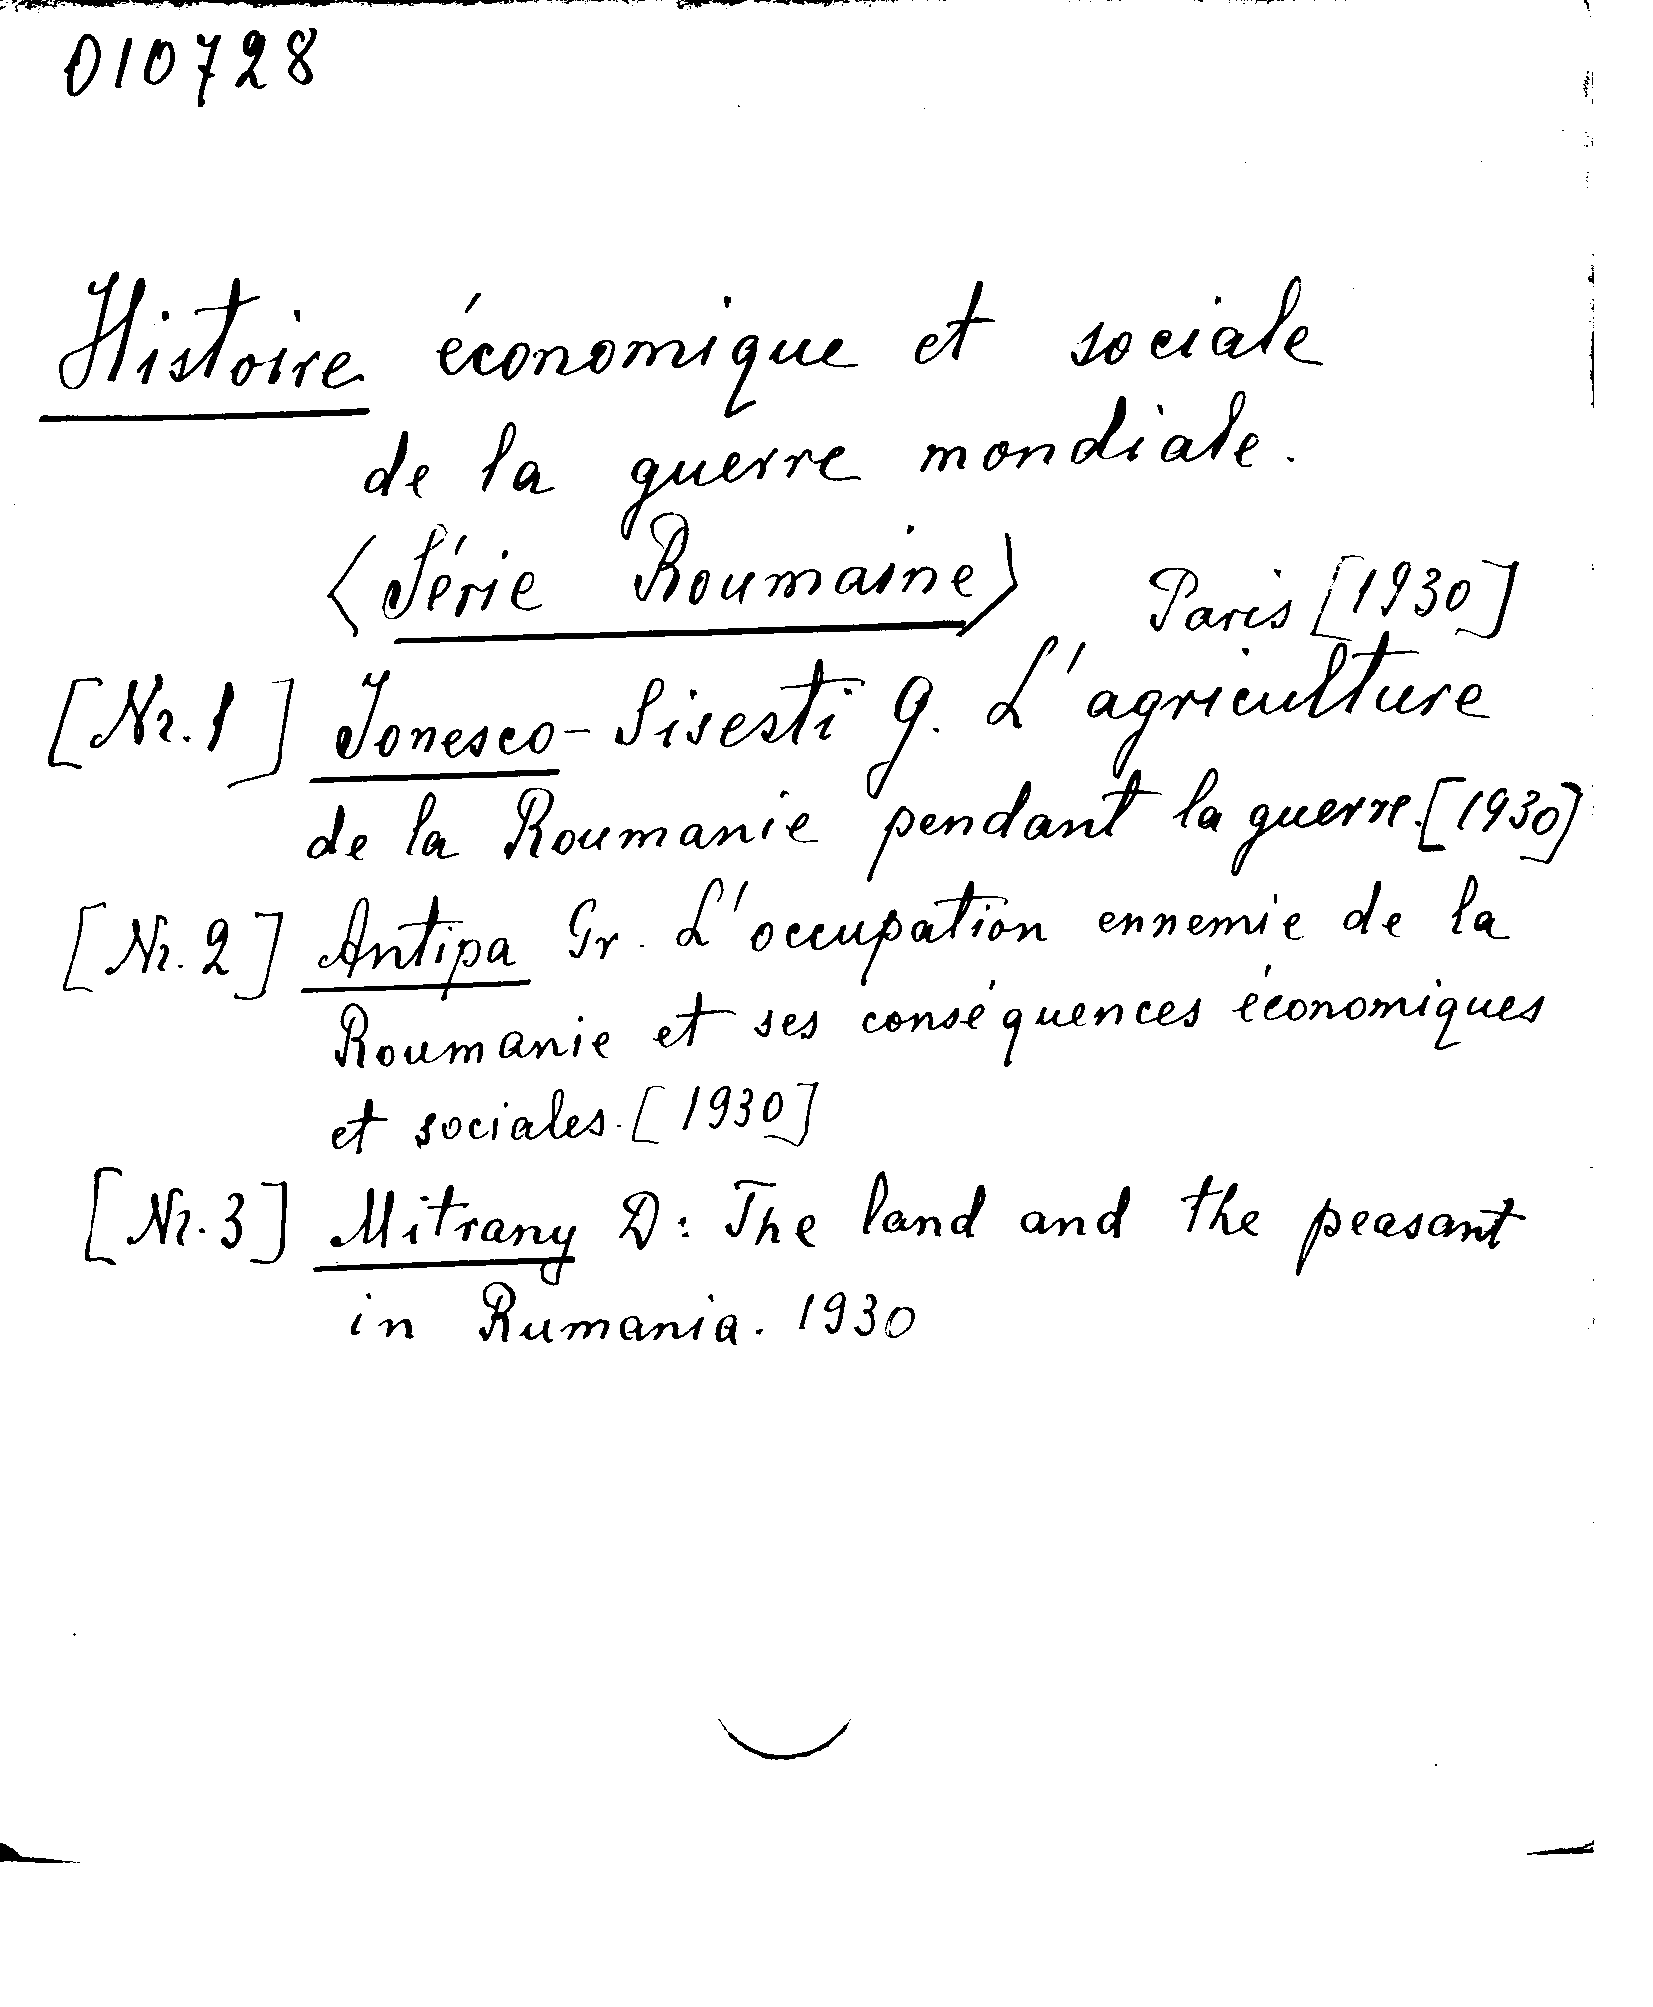 010728
Histoire économique et sociale
de la guerre mondiale.
〈Série Roumaine〉 Paris [1930]
[Nr. 1] Jonesco-Sisesti G. L'agriculture
de la Roumanie pendant la guerre. [1930]
[Nr. 2] Antipa Gr. L'occupation ennemie de la
Roumanie et ses conséquences économiques
et sociales. [1930]
[Nr. 3] Mitrany D: The land and the peasant
in Rumania. 1930